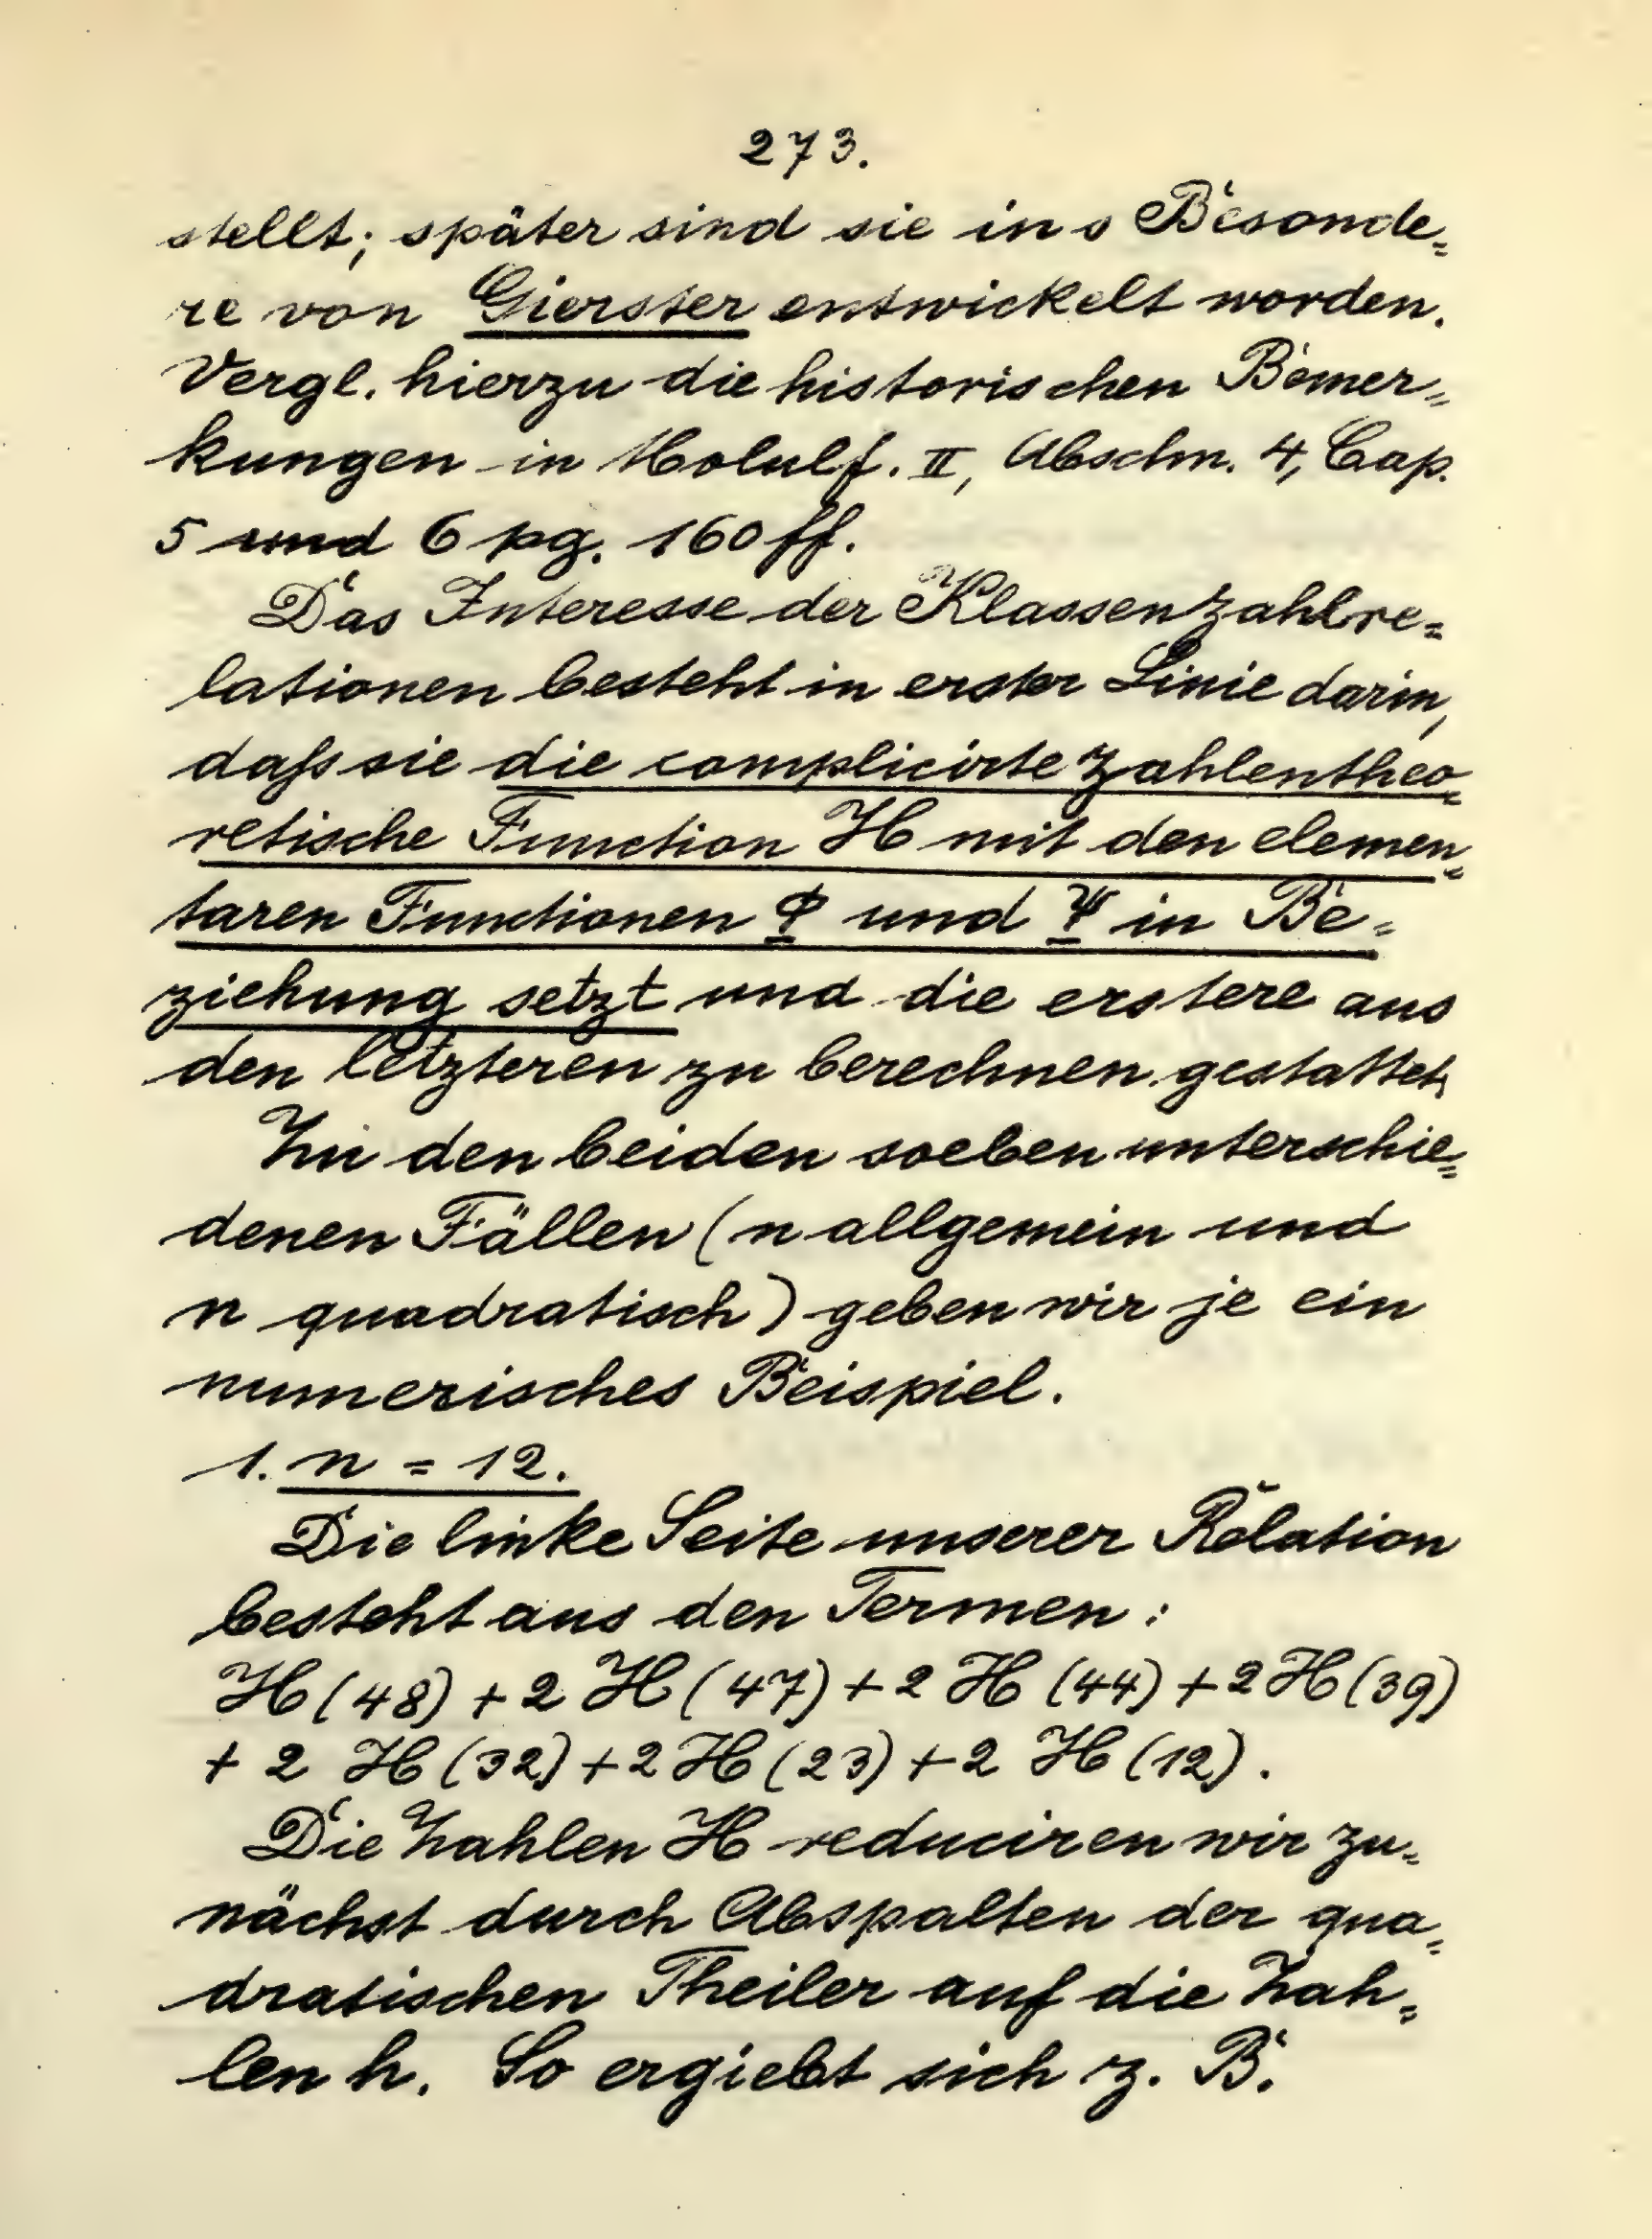 273.
stellt; später sind sie ins Besonde=
re von Gierster entwickelt worden.
Vergl. hierzu die historischen Bemer=
kungen in Molulf. II, Abschn. 4, Cap.
5 und 6 pg. 160 ff.
Das Interesse der Klassenzahlre=
lationen besteht in erster Linie darin,
daſs sie die complicirte zahlentheo=
retische Function H mit den elemen=
taren Functionen Φ und Ψ in Be=
ziehung setzt und die erstere aus
den letzteren zu berechnen gestattet.
Zu den beiden soeben unterschie=
denen Fällen (n allgemein und
n quadratisch) geben wir je ein
numerisches Beispiel.
1. n = 12.
Die linke Seite unserer Relation
besteht aus den Termen:
H(48) + 2 H(47) + 2 H(44) + 2 H(39)
+ 2 H(32) + 2 H(23) + 2 H(12).
Die Zahlen H reduciren wir zu=
nächst durch Abspalten der qua=
dratischen Theiler auf die Zah=
len h. So ergiebt sich z. B.